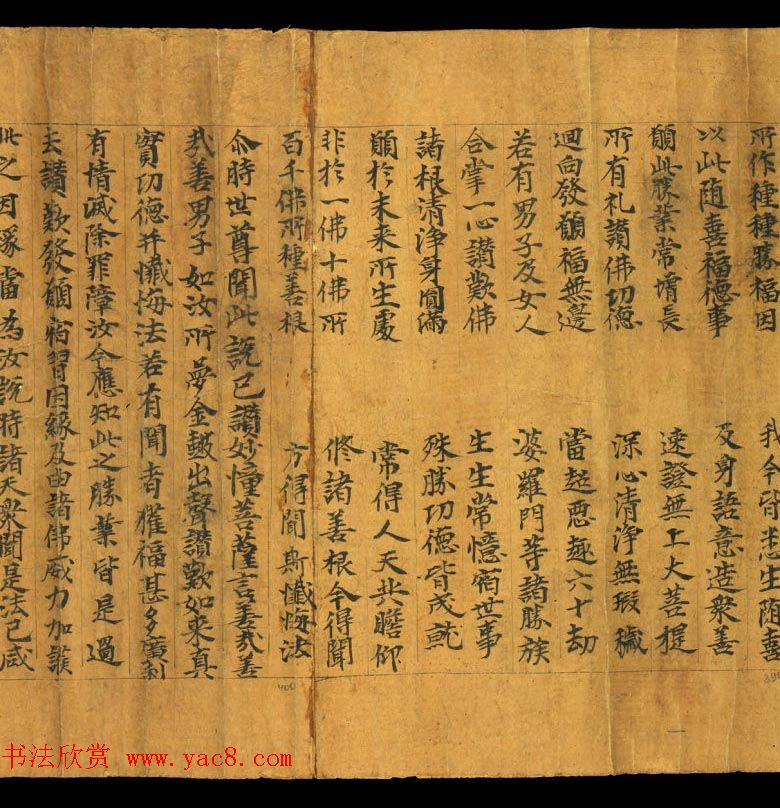 所作種種勝福因　我今皆悉生随喜
以此随喜福德事　及身語意造衆善
願此勝業常增長　速證無上大菩提
所有礼讃佛功德　深心清浄無瑕穢
迴向發願福無邊　當超惡趣六十劫
若有男子及女人　婆羅門等諸勝族
合掌一心讃歎佛　生生常憶宿世事
諸根清浄身圓滿　殊勝功德皆成就
願於未来所生處　常得人天共瞻仰
非於一佛十佛所　修諸善根今得聞
百千佛所種善根　方得聞斯懺悔法
尒時世尊聞此說已讃妙憧菩薩言善哉善
哉善男子如汝所夢金皷出聲讃歎如来真
實功德并懺悔法若有聞者獲福甚多廣利
有情滅除罪障汝今應知此之勝業皆是過
去讃歎發願宿習因緣及由諸佛威力加護
此之因緣當為汝說時諸天衆聞是法已咸
400
390
书法欣赏 www.yac8.com